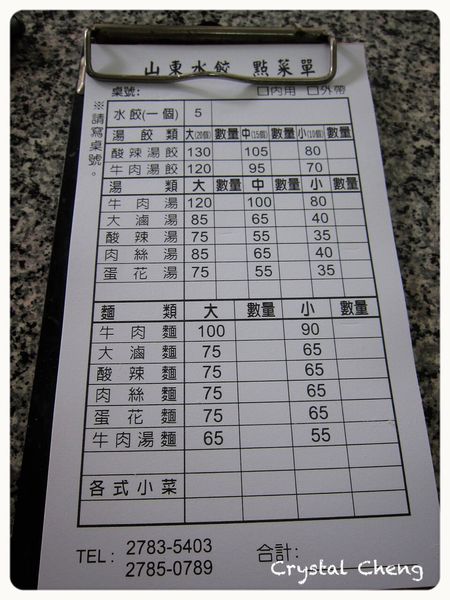 山東水餃 點菜單
桌號: □內用 □外帶
※請寫桌號。
水餃(一個) 5
湯餃類 大(20個) 數量 中(15個) 數量 小(10個) 數量
酸辣湯餃 130 105 80
牛肉湯餃 120 95 70
湯類 大 數量 中 數量 小 數量
牛肉湯 120 100 80
大滷湯 85 65 40
酸辣湯 75 55 35
肉絲湯 85 65 40
蛋花湯 75 55 35
麵類 大 數量 小 數量
牛肉麵 100 90
大滷麵 75 65
酸辣麵 75 65
肉絲麵 75 65
蛋花麵 75 65
牛肉湯麵 65 55
各式小菜
TEL: 2783-5403
2785-0789
合計:
Crystal Cheng